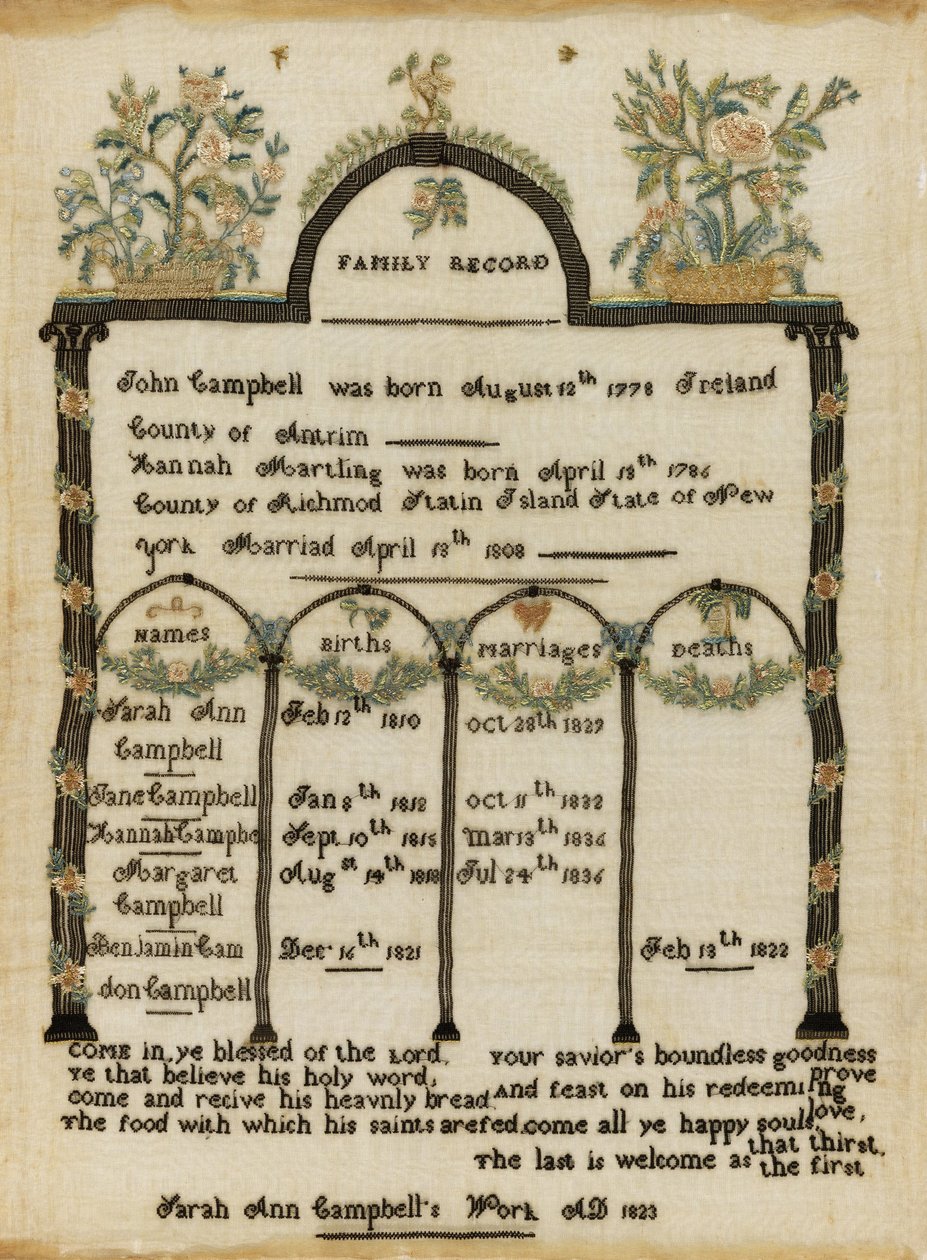 FAMILY RECORD
John Campbell was born August 12th 1778 Ireland
County of Antrim
Hannah Martling was born April 13th 1786
County of Richmod Statin Island State of New
york Marriad April 13th 1808
Names Births Marriages Deaths
Sarah Ann Feb 12th 1810 oct 28th 1829
Campbell
Jane Campbell Jan 8th 1812 oct 11th 1832
Hannah Campbe Sept 10th 1815 mar 13th 1836
Margaret Augst 14th 1818 Jul 24th 1836
Campbell
Benjamin Cam Dec 16th 1821 Feb 13th 1822
don Campbell
COME in ye blessed of the Lord,
Ye that believe his holy word,
Come and recive his heavnly bread
The food with which his saints are fed.
Your savior's boundless goodness
prove
And feast on his redeeming
love,
come all ye happy souls,
that thirst,
The last is welcome as
the first
Sarah Ann Campbell's Work AD 1823